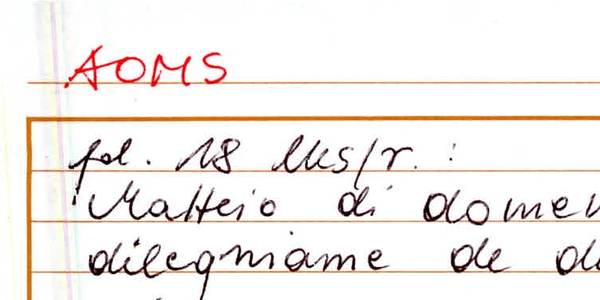 AOMS
fol. 18 lks/r. :
Matteio di domen
dilegniame de de